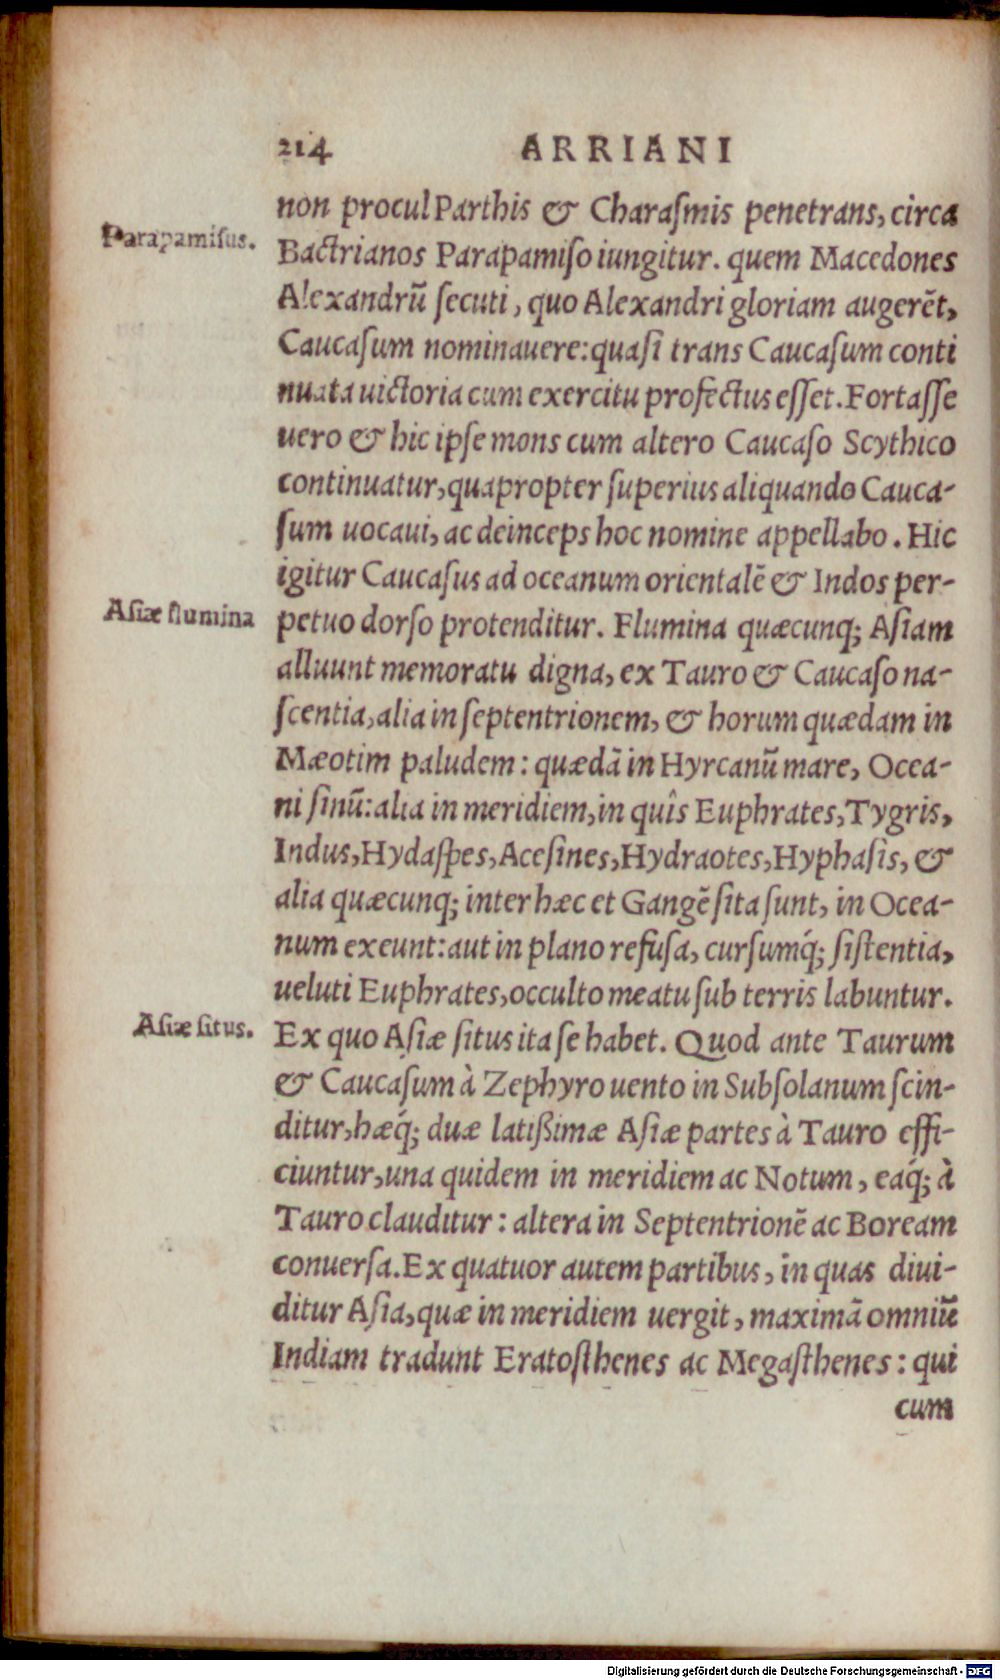 214 ARRIANI
non procul Parthis & Charaſmis penetrans, circa
Parapamiſus.
Bactrianos Parapamiſo iungitur. quem Macedones
Alexandrũ ſecuti, quo Alexandri gloriam augerẽt,
Caucaſum nominauere: quaſi trans Caucaſum conti
nuata uictoria cum exercitu profectus eſſet. Fortaſſe
uero & hic ipſe mons cum altero Caucaſo Scythico
continuatur, quapropter ſuperius aliquando Cauca-
ſum uocaui, ac deinceps hoc nomine appellabo. Hic
igitur Caucaſus ad oceanum orientalẽ & Indos per-
Aſiæ flumina
petuo dorſo protenditur. Flumina quæcunq; Aſiam
alluunt memoratu digna, ex Tauro & Caucaſo na-
ſcentia, alia in ſeptentrionem, & horum quædam in
Mæotim paludem: quædã in Hyrcanũ mare, Ocea-
ni ſinũ: alia in meridiem, in quîs Euphrates, Tygris,
Indus, Hydaſpes, Aceſines, Hydraotes, Hyphaſis, &
alia quæcunq; inter hæc et Gangẽ ſita ſunt, in Ocea-
num exeunt: aut in plano refuſa, curſumq́; ſiſtentia,
ueluti Euphrates, occulto meatu ſub terris labuntur.
Aſiæ ſitus.
Ex quo Aſiæ ſitus ita ſe habet. Quod ante Taurum
& Caucaſum à Zephyro uento in Subſolanum ſcin-
ditur, hæq́; duæ latißimæ Aſiæ partes à Tauro effi-
ciuntur, una quidem in meridiem ac Notum, eaq́; à
Tauro clauditur: altera in Septentrionẽ ac Boream
conuerſa. Ex quatuor autem partibus, in quas diui-
ditur Aſia, quæ in meridiem uergit, maximã omniũ
Indiam tradunt Eratoſthenes ac Megaſthenes: qui
cum
Digitalisierung gefördert durch die Deutsche Forschungsgemeinschaft - DFG